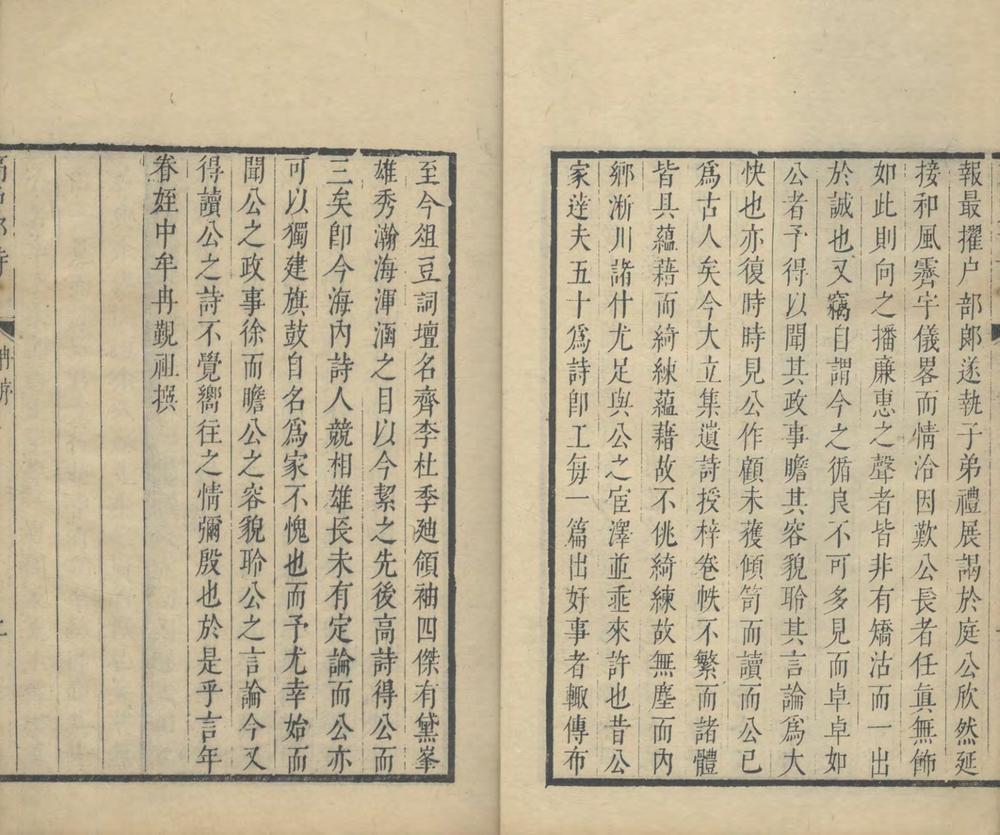 報最擢户部郞遂執子弟禮展謁於庭公欣然延
接和風霽宇儀畧而情洽因歎公長者任眞無飾
如此則向之播廉惠之聲者皆非有矯沽而一出
於誠也又竊自謂今之循良不可多見而卓卓如
公者予得以聞其政事瞻其容貌聆其言論爲大
快也亦復時時見公作顧未獲傾笥而讀而公已
爲古人矣今大立集遺詩授梓卷帙不繁而諸體
皆具蘊藉而綺練蘊藉故不佻綺練故無塵而內
鄉淅川諸什尤足與公之宦澤並垂來許也昔公
家達夫五十爲詩卽工每一篇出好事者輙傳布
至今俎豆詞壇名齊李杜季廸領袖四傑有黛峯
雄秀瀚海渾涵之目以今絜之先後高詩得公而
三矣卽今海內詩人競相雄長未有定論而公亦
可以獨建旗鼓自名爲家不愧也而予尤幸始而
聞公之政事徐而瞻公之容貌聆公之言論今又
得讀公之詩不覺嚮往之情彌殷也於是乎言年
眷姪中牟冉覲祖撰